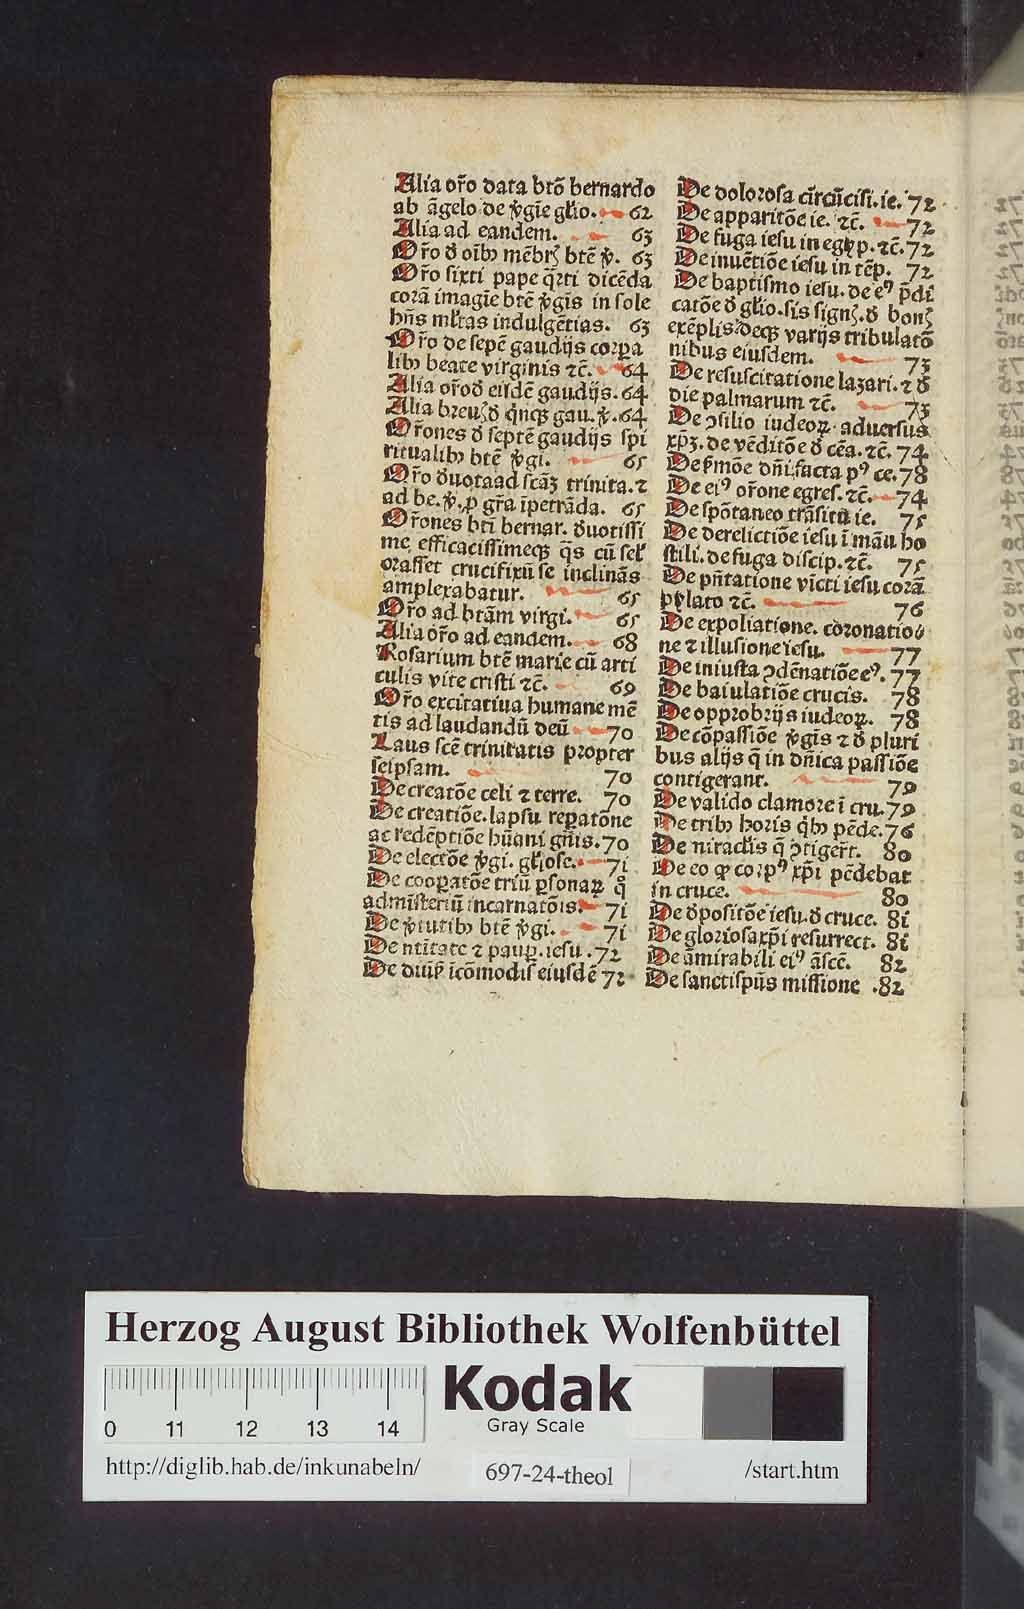 Alia or̃o data btõ bernardo
ab ãgelo de ꝟgĩe gl'io. 62
Alia ad eandem. 63
Or̃o ð oĩbꝫ mẽbrꝭ btẽ ꝟ. 63
Or̃o sixti pape q̃rti dicẽda
corã imagĩe btẽ ꝟgĩs in sole
hñs ml'tas indulgẽtias. 63
Or̃o de septẽ gaudijs corꝑa
libꝫ beate virginis ⁊c̃. 64
Alia or̃o ð eisdẽ gaudijs. 64
Alia breuꝭ ð q̃nqꝫ gau. ꝟ. 64
Or̃ones ð septẽ gaudijs spi
ritualibꝫ btẽ ꝟgi. 65
Or̃o ðuota ad scãꝫ trinita. ⁊
ad be. ꝟ. ꝓ gr̃a ĩpetrãda. 65
Or̃ones bti bernar. ðuotissi
me efficacissimeqꝫ q̃s cũ sel'
orasset crucifixũ se inclinãs
amplexabatur. 65
Or̃o ad btãm virgi. 65
Alia or̃o ad eandem. 68
Rosarium btẽ marie cũ arti
culis vite cristi ⁊c̃. 69
Or̃o excitatiua humane mẽ
tis ad laudandũ deũ 70
Laus scẽ trinitatis propter
seipsam. 70
De creatõe celi ⁊ terre. 70
De creatiõe. lapsu reꝑatõne
ac redẽptiõe hũani gñis. 70
De electõe ꝟgi. gl'iose. 71
De cooꝑatõe triũ ꝑsonaꝝ q°
ad misteriũ incarnatõis. 71
De ꝟtutibꝫ btẽ ꝟgi. 71
De nt̃itate ⁊ pauꝑ. iesu. 72
De diũs̃ icõmodis eiusdẽ 72
De dolorosa cĩrcũcisi. ie. 72
De apparitõe ie. ⁊c̃. 72
De fuga iesu in egyp. ⁊c̃. 72
De inuẽtiõe iesu in tẽp. 72
De baptismo iesu. de eꝰ p̃di
catõe ð gl'io. sis signꝭ. ð bonꝭ
exẽplis. deqꝫ varijs tribulatõ
nibus eiusdem. 73
De resuscitatione lazari. ⁊ ð
die palmarum ⁊c̃. 73
De ꝯsilio iudeoꝝ aduersus
xp̃ꝫ. de vẽditõe ð cẽa. ⁊c̃. 74
De s̃mõe dñi facta pꝰ ce. 78
De eiꝰ or̃one egres. ⁊c̃. 74
De spõtaneo trãsitu ie. 75
De derelictiõe iesu ĩ mãu ho
stili. de fuga discip. ⁊c̃. 75
De pñtatione victi iesu corã
pylato ⁊c̃. 76
De expoliatione. coronatio
ne ⁊ illusione iesu. 77
De iniusta ꝯdẽnatiõe eꝰ. 77
De baiulatiõe crucis. 78
De opprobrijs iudeoꝝ. 78
De cõpassiõe ꝟgĩs ⁊ ð pluri
bus alijs q̃ in dñica passiõe
contigerant. 79
De valido clamore ĩ cru. 79
De tribꝫ horis q̃bꝫ pẽde. 76
De miracl'is q̃ ꝯtiger̃t. 80
De eo ꝙ corpꝰ xp̃i pẽdebat
in cruce. 80
De ðpositõe iesu. ð cruce. 81
De gloriosa xp̃i resurrect. 81
De ãmirabili eiꝰ ãscẽ. 82
De sancti spũs missione .82
Herzog August Bibliothek Wolfenbüttel
0 11 12 13 14
Kodak
Gray Scale
http://diglib.hab.de/inkunabeln/
697-24-theol
/start.htm